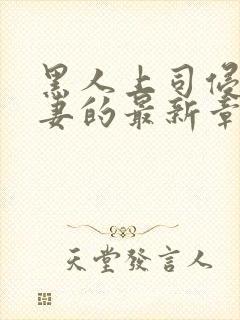 黑人上司侵
妻的最新章
天堂發言人